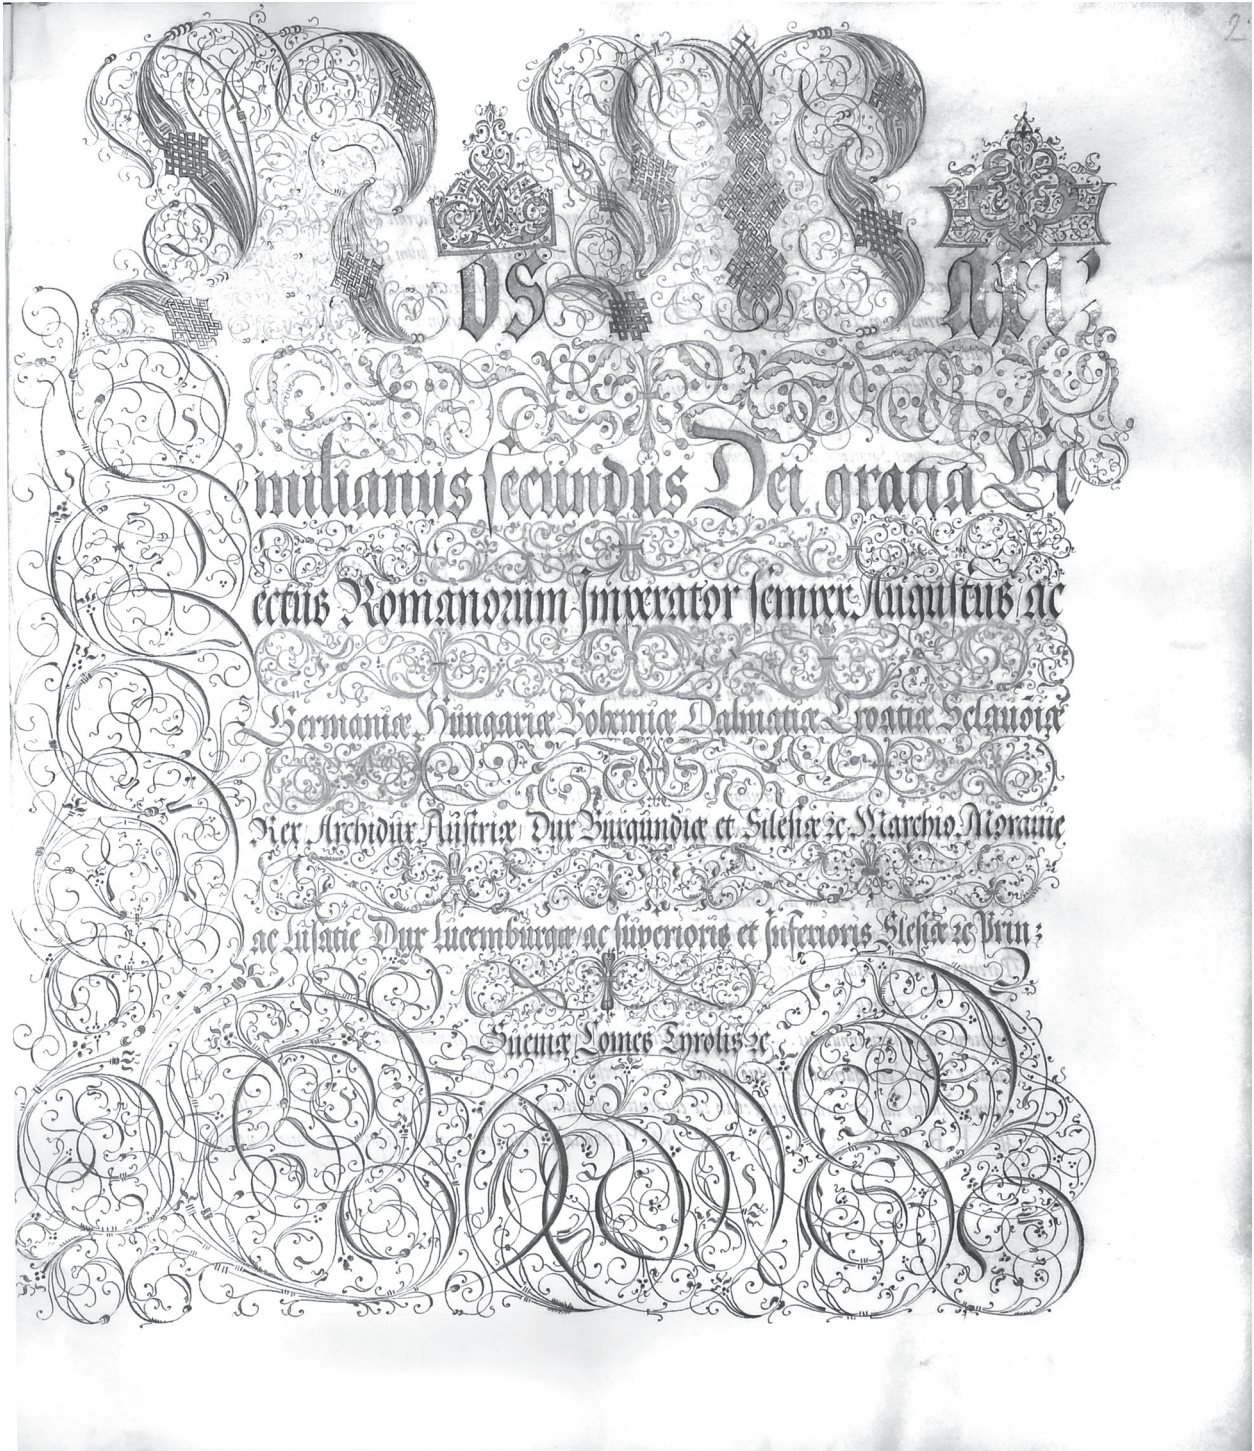 2
Nos Maxi:
milianus secundus Dei gratia El
ectus Romanorum Imperator semper Augustus ac
Germaniæ Hungariæ Bohemiæ Dalmatiæ Croatiæ Sclauoiæ
Rex Archidux Austriæ Dux Burgundiæ et Silesiæ ꝛc. Marchio Morauie
ac Lusatie Dux Lucemburgæ ac superioris et Inferioris Slesiæ ꝛc Prin:
Sueuiæ Comes Tyrolis ꝛc